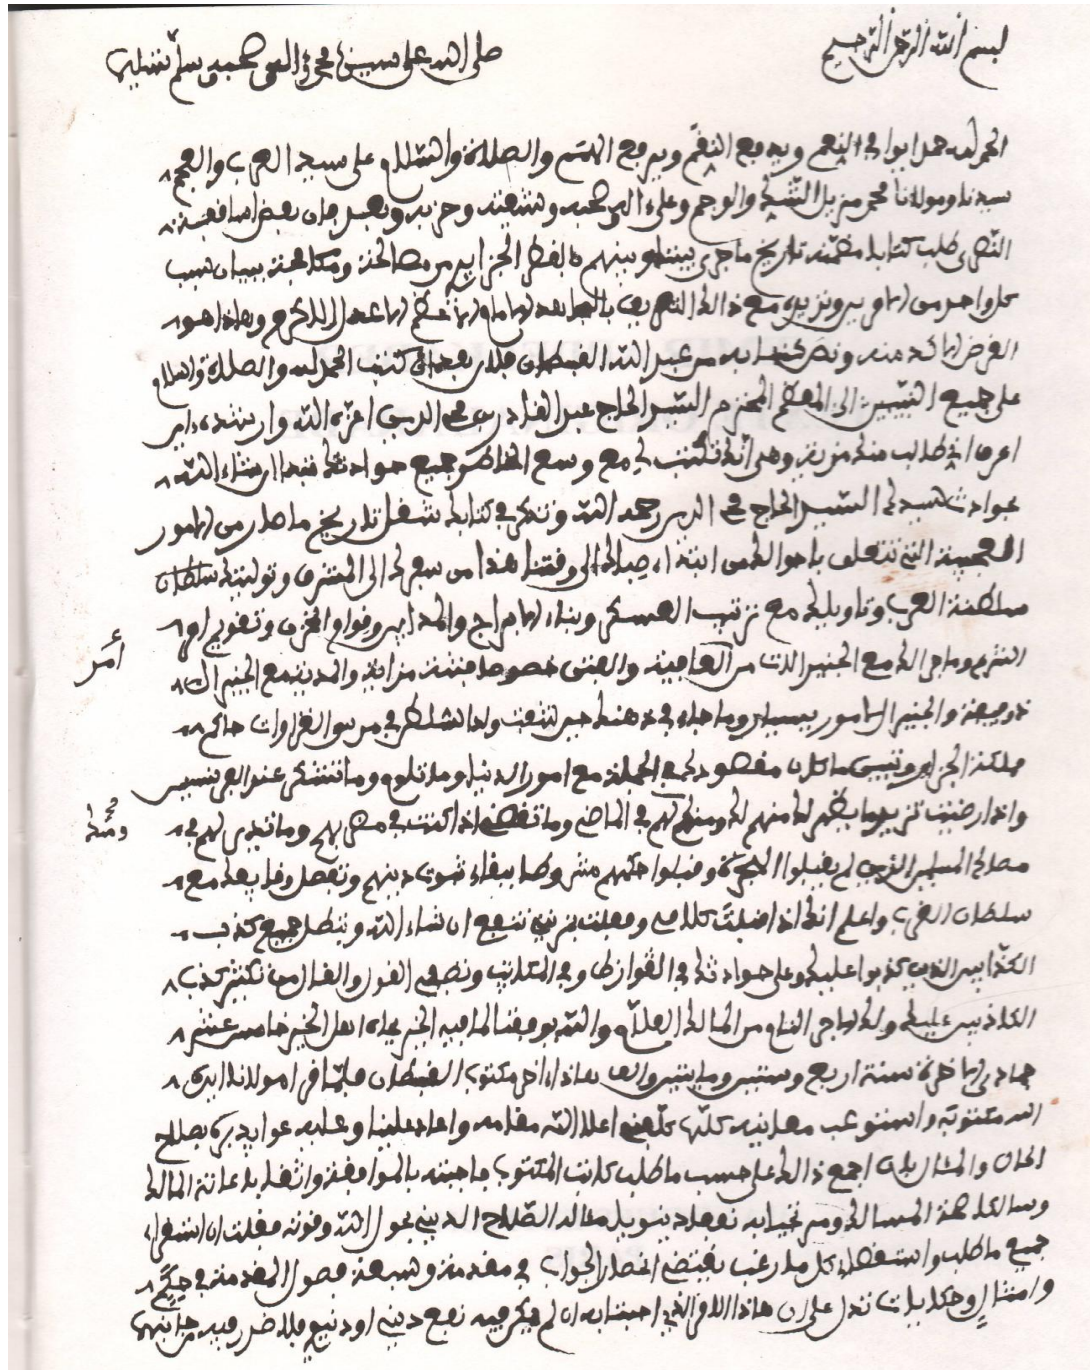 بسم الله الرحمن الرحيم
صلى الله على سيدنا محمد وآله وصحبه وسلم تسليما
الحمد لله حمدا يوافي النعم ويدفع النقم ويرفع الهمم والصلاة والسلام على سيد العرب والعجم
سيدنا ومولانا محمد مزيل الشك والوهم وعلى آله وصحبه وشيعته وحزبه وبعد فإن بعض اساقفة
النصرى طلب كتابا مضمنه تاريخ ما جرى بيننا وبينهم بالقطر الجزايري من مصالحة ومكافحة ببيان سبب
كل واحد من الامرين ونزيده مع ذالك التعريف بالمجاهد الامام الاعظم الاعدل الاكرم وهذا هو
الغرض الاكد منه ونص كتابه من عبد الله القبطان فلان بفجاق كتب الحمد لله والصلاة والسلام
على جميع النبيين الى المعظم المحترم السيد الحاج عبد القادر بن محي الدين اعزه الله وارشده امين
اعرف اني طالب منك مزية وهي أنك تكتب لي مع وسع الخاطر جميع حوادثك مبتدا ان شاء الله
بحوادث سيدك السيد الحاج محي الدين رحمه الله وتذكر في كتابك شغل تاريخ ما صار من الامور
العجيبة التي تتعلق باحوالك من ابتداء صباك الى وقتنا هذا من سفرك الى المشرق وتوليتك سلطان
سلطنة العرب وتاويلك مع ترتيب العسكر وبناء الابراج والمدابر وقوام المخزن وتقويم امر
الشرع وما جرا لك مع الجنيرالات من العافية والفتن خصوصا فتنة مزاية والمدينة مع الجنيرال
دوميشة والجنيرال لامورسيير وما جاء في ذهنك حين شفت ولد السلطن في مرسى الغزاوات حاكم
مملكة الجزاير وتبين ما كان مقصودك في الجملة مع امور الدنيا وما تلوم وما تشكر عند الفرنسيس
واذا رضيت تزيد ما يظهر لك منهم لك ومنك لهم في الماضي وما تفطن اذا كنت في مضربهم وما تدبر لهم في
مصالح المسلمين الذين لم يقبلوا الهجرة وقبلوا حكمهم مشروطا ببقاء ثبوت دينهم وتفصل وقايعك مع
سلطان الغرب واعلم انك اذا قبلت كلامي وفعلت مزيتي تنفع ان شاء الله ويبطل جميع كذب
الكذابين الذين كذبوا عليك وعلى حوادثك في القوازط وفي المكاتيب وتصفي القول والقال من تكثير كذب
الكاذبين عليك ولك الاجر التام من المالك العلام والله يوفقنا لما فيه الخير بجاه اهل الخير خامس عشر
جمادى الاخرة سنة اربع وستين وماتين والف هاذا اخر مكتوب القبطان فلما قرا مولانا ايده
الله مكتوبه واستوعب معانيه كلها كلفني اعلا الله مقامه واعاد علينا وعليه عوايد بره بصلاح
الحال والمئال بان اجمع ذالك على حسب ما طلب كاتب المكتوب فاجبته بالموافقة واثقا باعانة المالك
وسالكا هذه المسالك ومن تخيابه نفعا دينويا بل مقالد الصلاح الديني بحول الله وقوته فقلت ان استقراء
جميع ما طلب واستقصاء كل ما رغب يقتضي انحصار الجواب في مقدمة وسبعة فصول المقدمة في حكم
وامثال وحكايات تدل على ان هاذا الامر الذي اجبنا به ان لم يكن فيه نفع ديني او دنيوي فلا ضرر فيه من جانبهما
أمر
ومنك